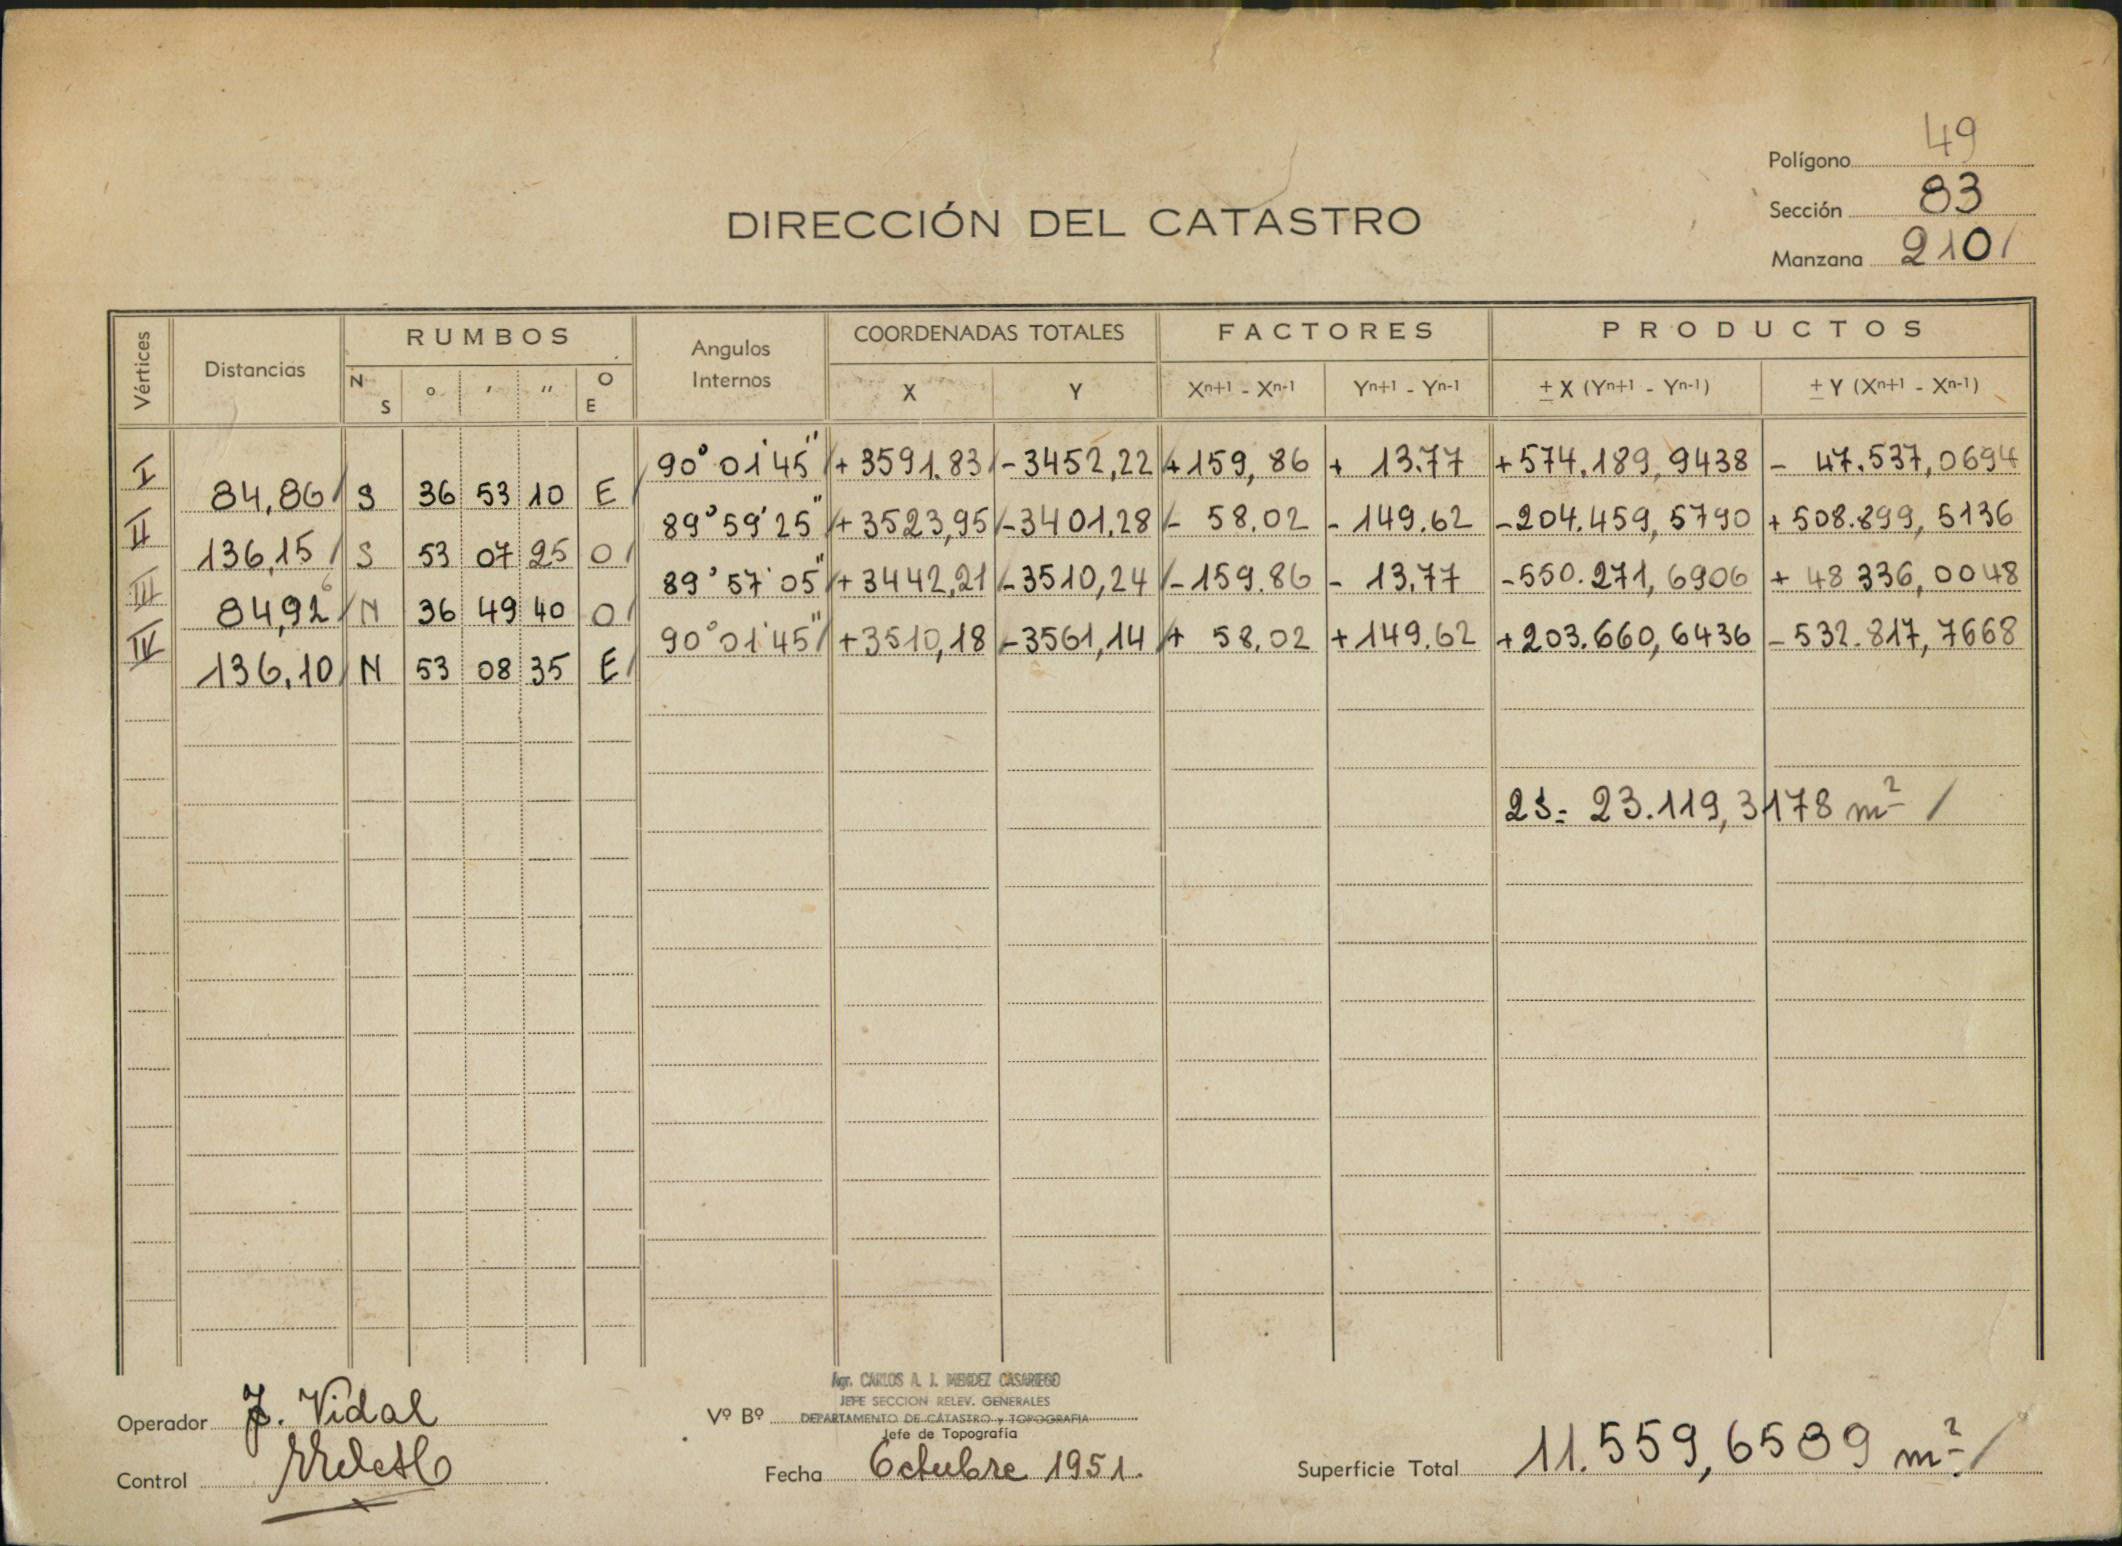 Polígono 49
Sección 83
Manzana 210
DIRECCIÓN DEL CATASTRO
Vértices Distancias RUMBOS Angulos Internos COORDENADAS TOTALES FACTORES PRODUCTOS
N S ° ' " O E X Y Xn+1 - Xn-1 Yn+1 - Yn-1 ± X (Yn+1 - Yn-1) ± Y (Xn+1 - Xn-1)
I 90° 01' 45" + 3591.83 - 3452,22 + 159,86 + 13.77 + 574.189,9438 - 47.537,0694
84,86 S 36 53 10 E
II 89° 59' 25" + 3523,95 - 3401,28 - 58.02 - 149.62 - 204.459,5790 + 508.899,5136
136,15 S 53 07 25 O
III 89° 57' 05" + 3442,21 - 3510,24 - 159.86 - 13,77 - 550.271,6906 + 48 336,0048
84,92 N 36 49 40 O
IV 90° 01' 45" + 3510,18 - 3561,14 + 58.02 + 149.62 + 203.660,6436 - 532.817,7668
136,10 N 53 08 35 E
2S = 23.119,3178 m²
Operador J. Vidal
Control
Vº Bº Agr. CARLOS A. J. MENDEZ CASARIEGO
JEFE SECCION RELEV. GENERALES
DEPARTAMENTO DE CATASTRO y TOPOGRAFIA
Jefe de Topografía
Fecha Octubre 1951.
Superficie Total 11.559,6589 m²